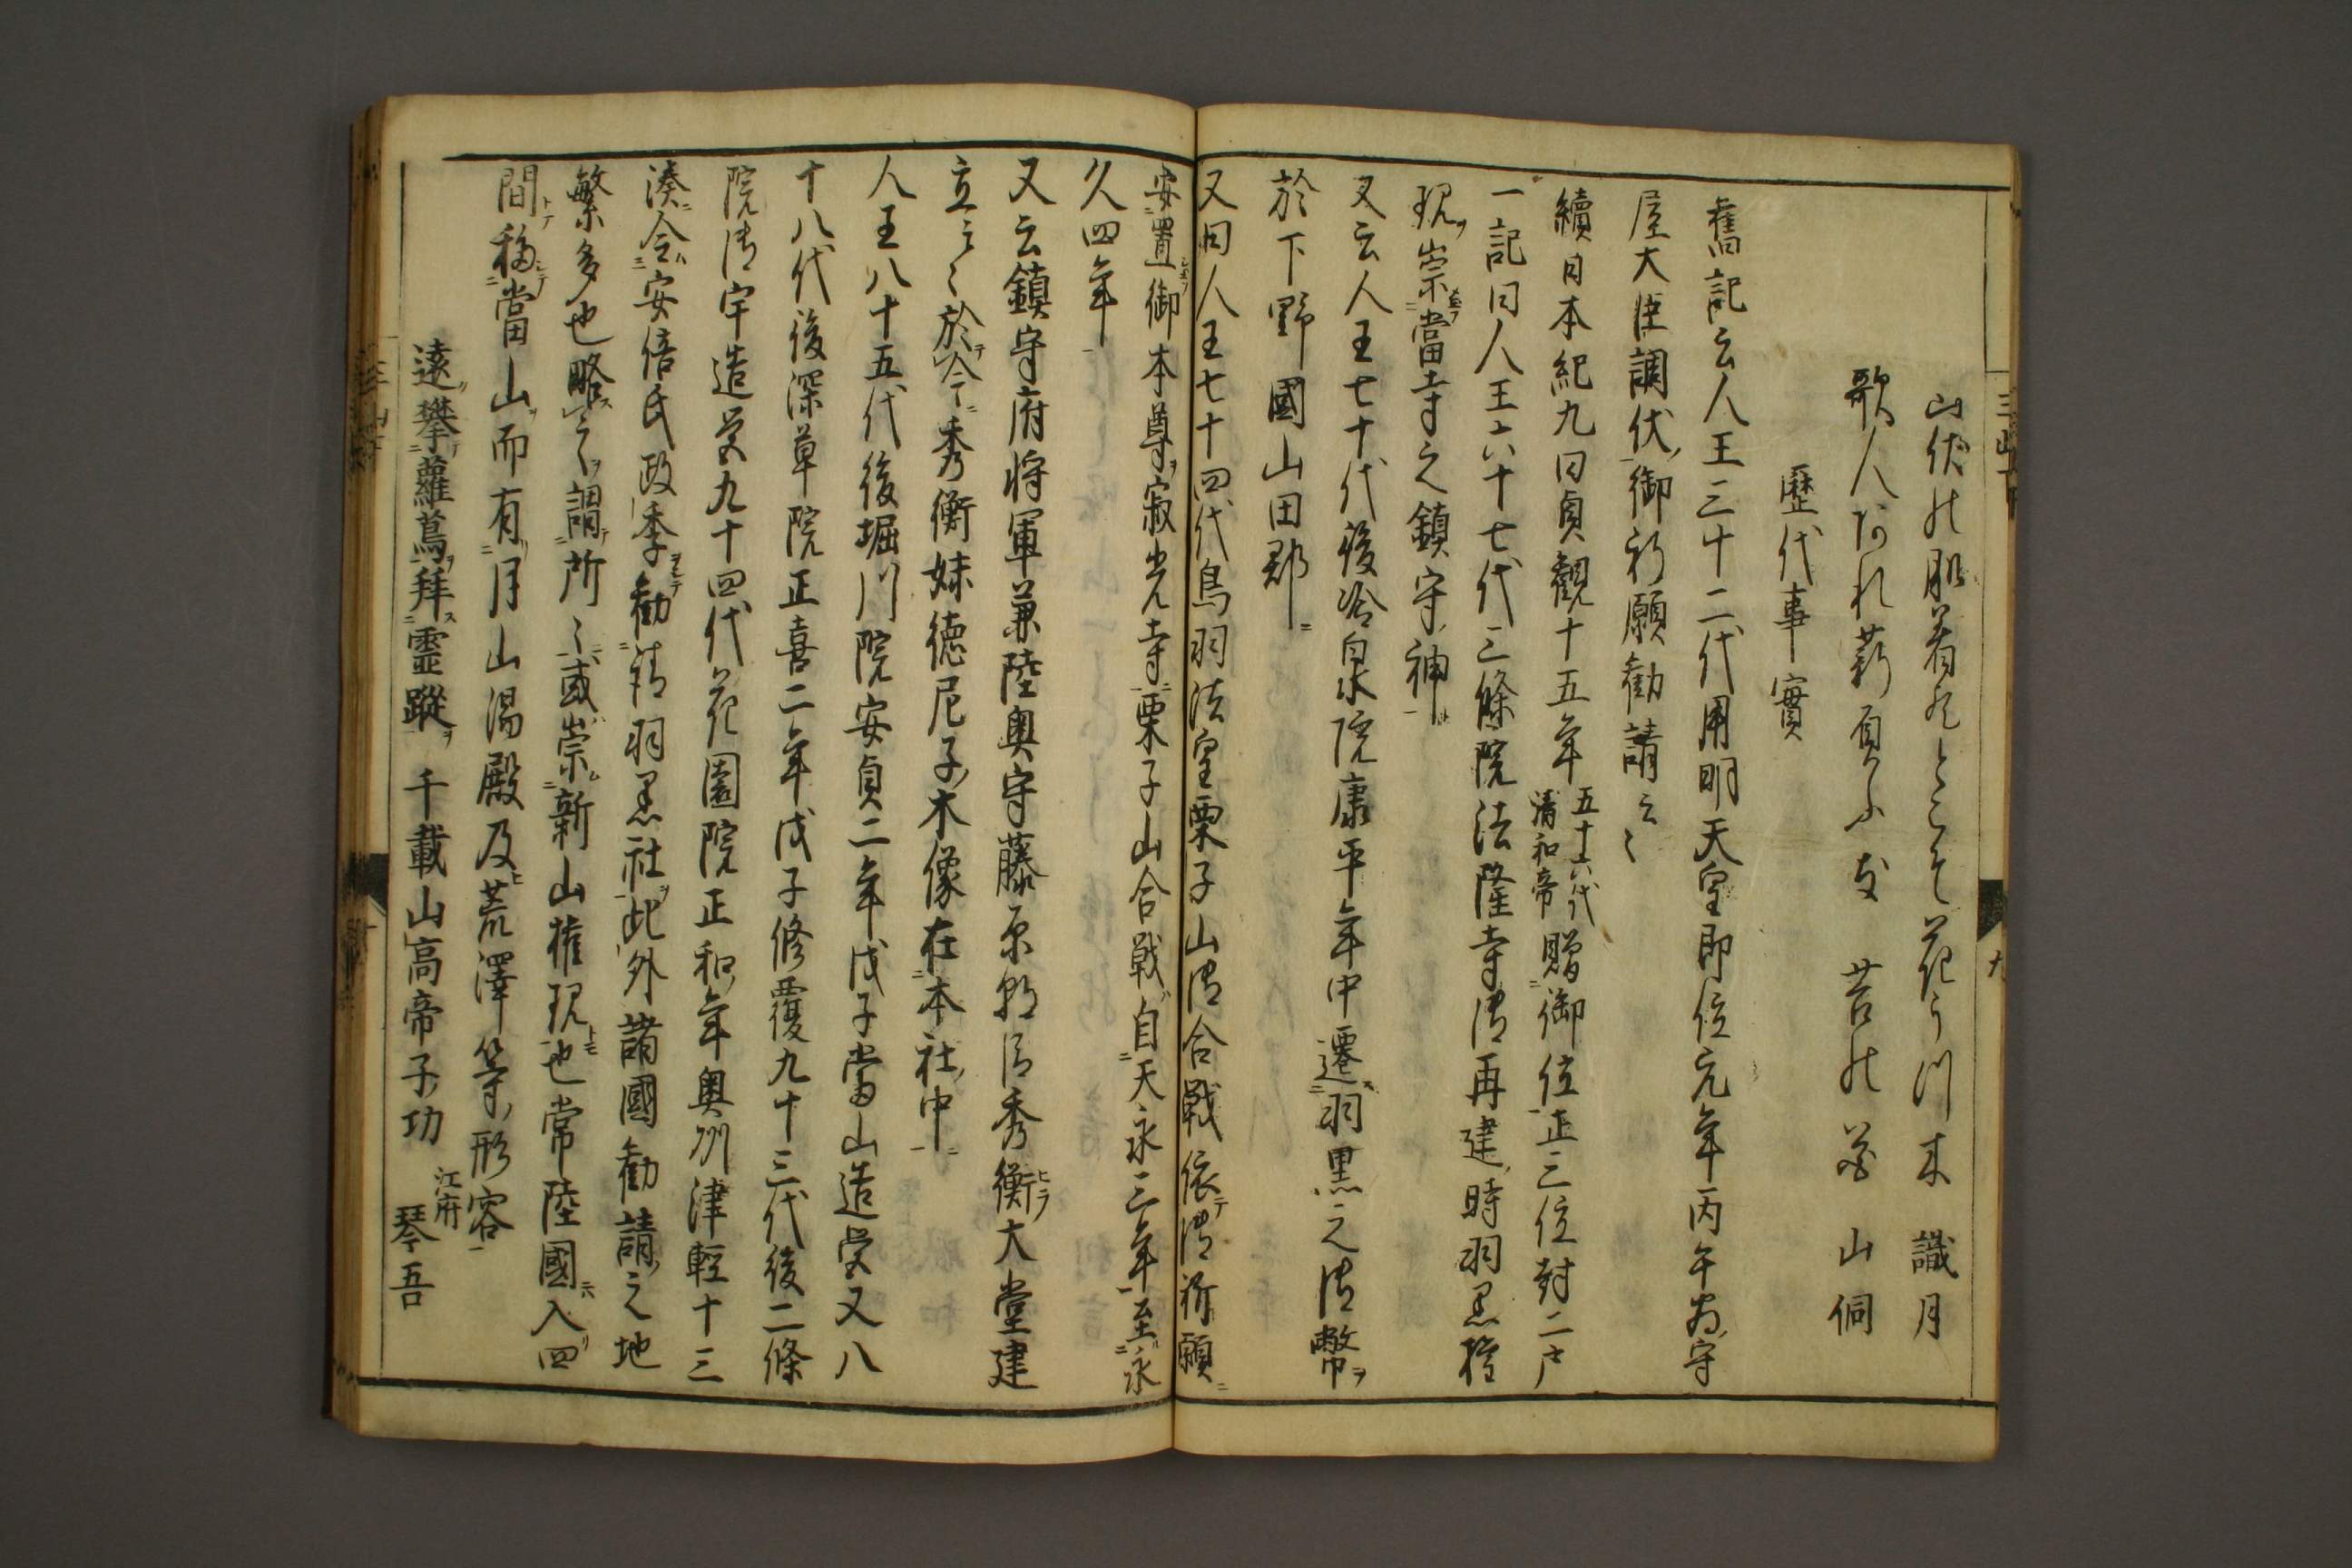 山伏の肌着もとこそ花うつ木　識月
歌人あれ薪負ふ友　苔の花　山侗
歴代事實
舊記云人王三十二代用明天皇即位元年丙午為守
屋大臣調伏御祈願勧請云々
續日本紀九曰貞觀十五年五十六代清和帝贈御位正三位封二戸
一記曰人王六十七代三條院法隆寺御再建時羽黒権
現ヲ崇當寺之鎮守神
又云人王七十代後冷泉院康平年中遷羽黒之御幣ヲ
於下野國山田郡ニ
又曰人王七十四代鳥羽法皇栗子山御合戰依テ御祈願ニ
安置御本尊ヲ寂光寺ニ栗子山合戰自天永三年至永
久四年
又云鎮守府将軍兼陸奥守藤原朝臣秀衡ヒラ大堂建
立云々於今ニ秀衡妹徳尼子木像在本社中ニ
人王八十五代後堀川院安貞二年戊子當山造営又八
十八代後深草院正喜二年戊子修覆九十三代後二條
院御宇造営九十四代花園院正和年奥州津輕十三
湊ニ令安倍氏政季ヲシテ勧請羽黒社ヲ此外諸國勧請之地
繁多也略ス之ヲ謂所々或崇新山権現トモ也常陸國ニハ入四
間トテ移シテ當山ヲ而有リ月山湯殿及ヒ荒澤等形容
遠ク攀テ蘿蔦ヲ拜ス靈蹤ヲ　千載山高帝子功　江府　琴吾
三山
九
三山
十